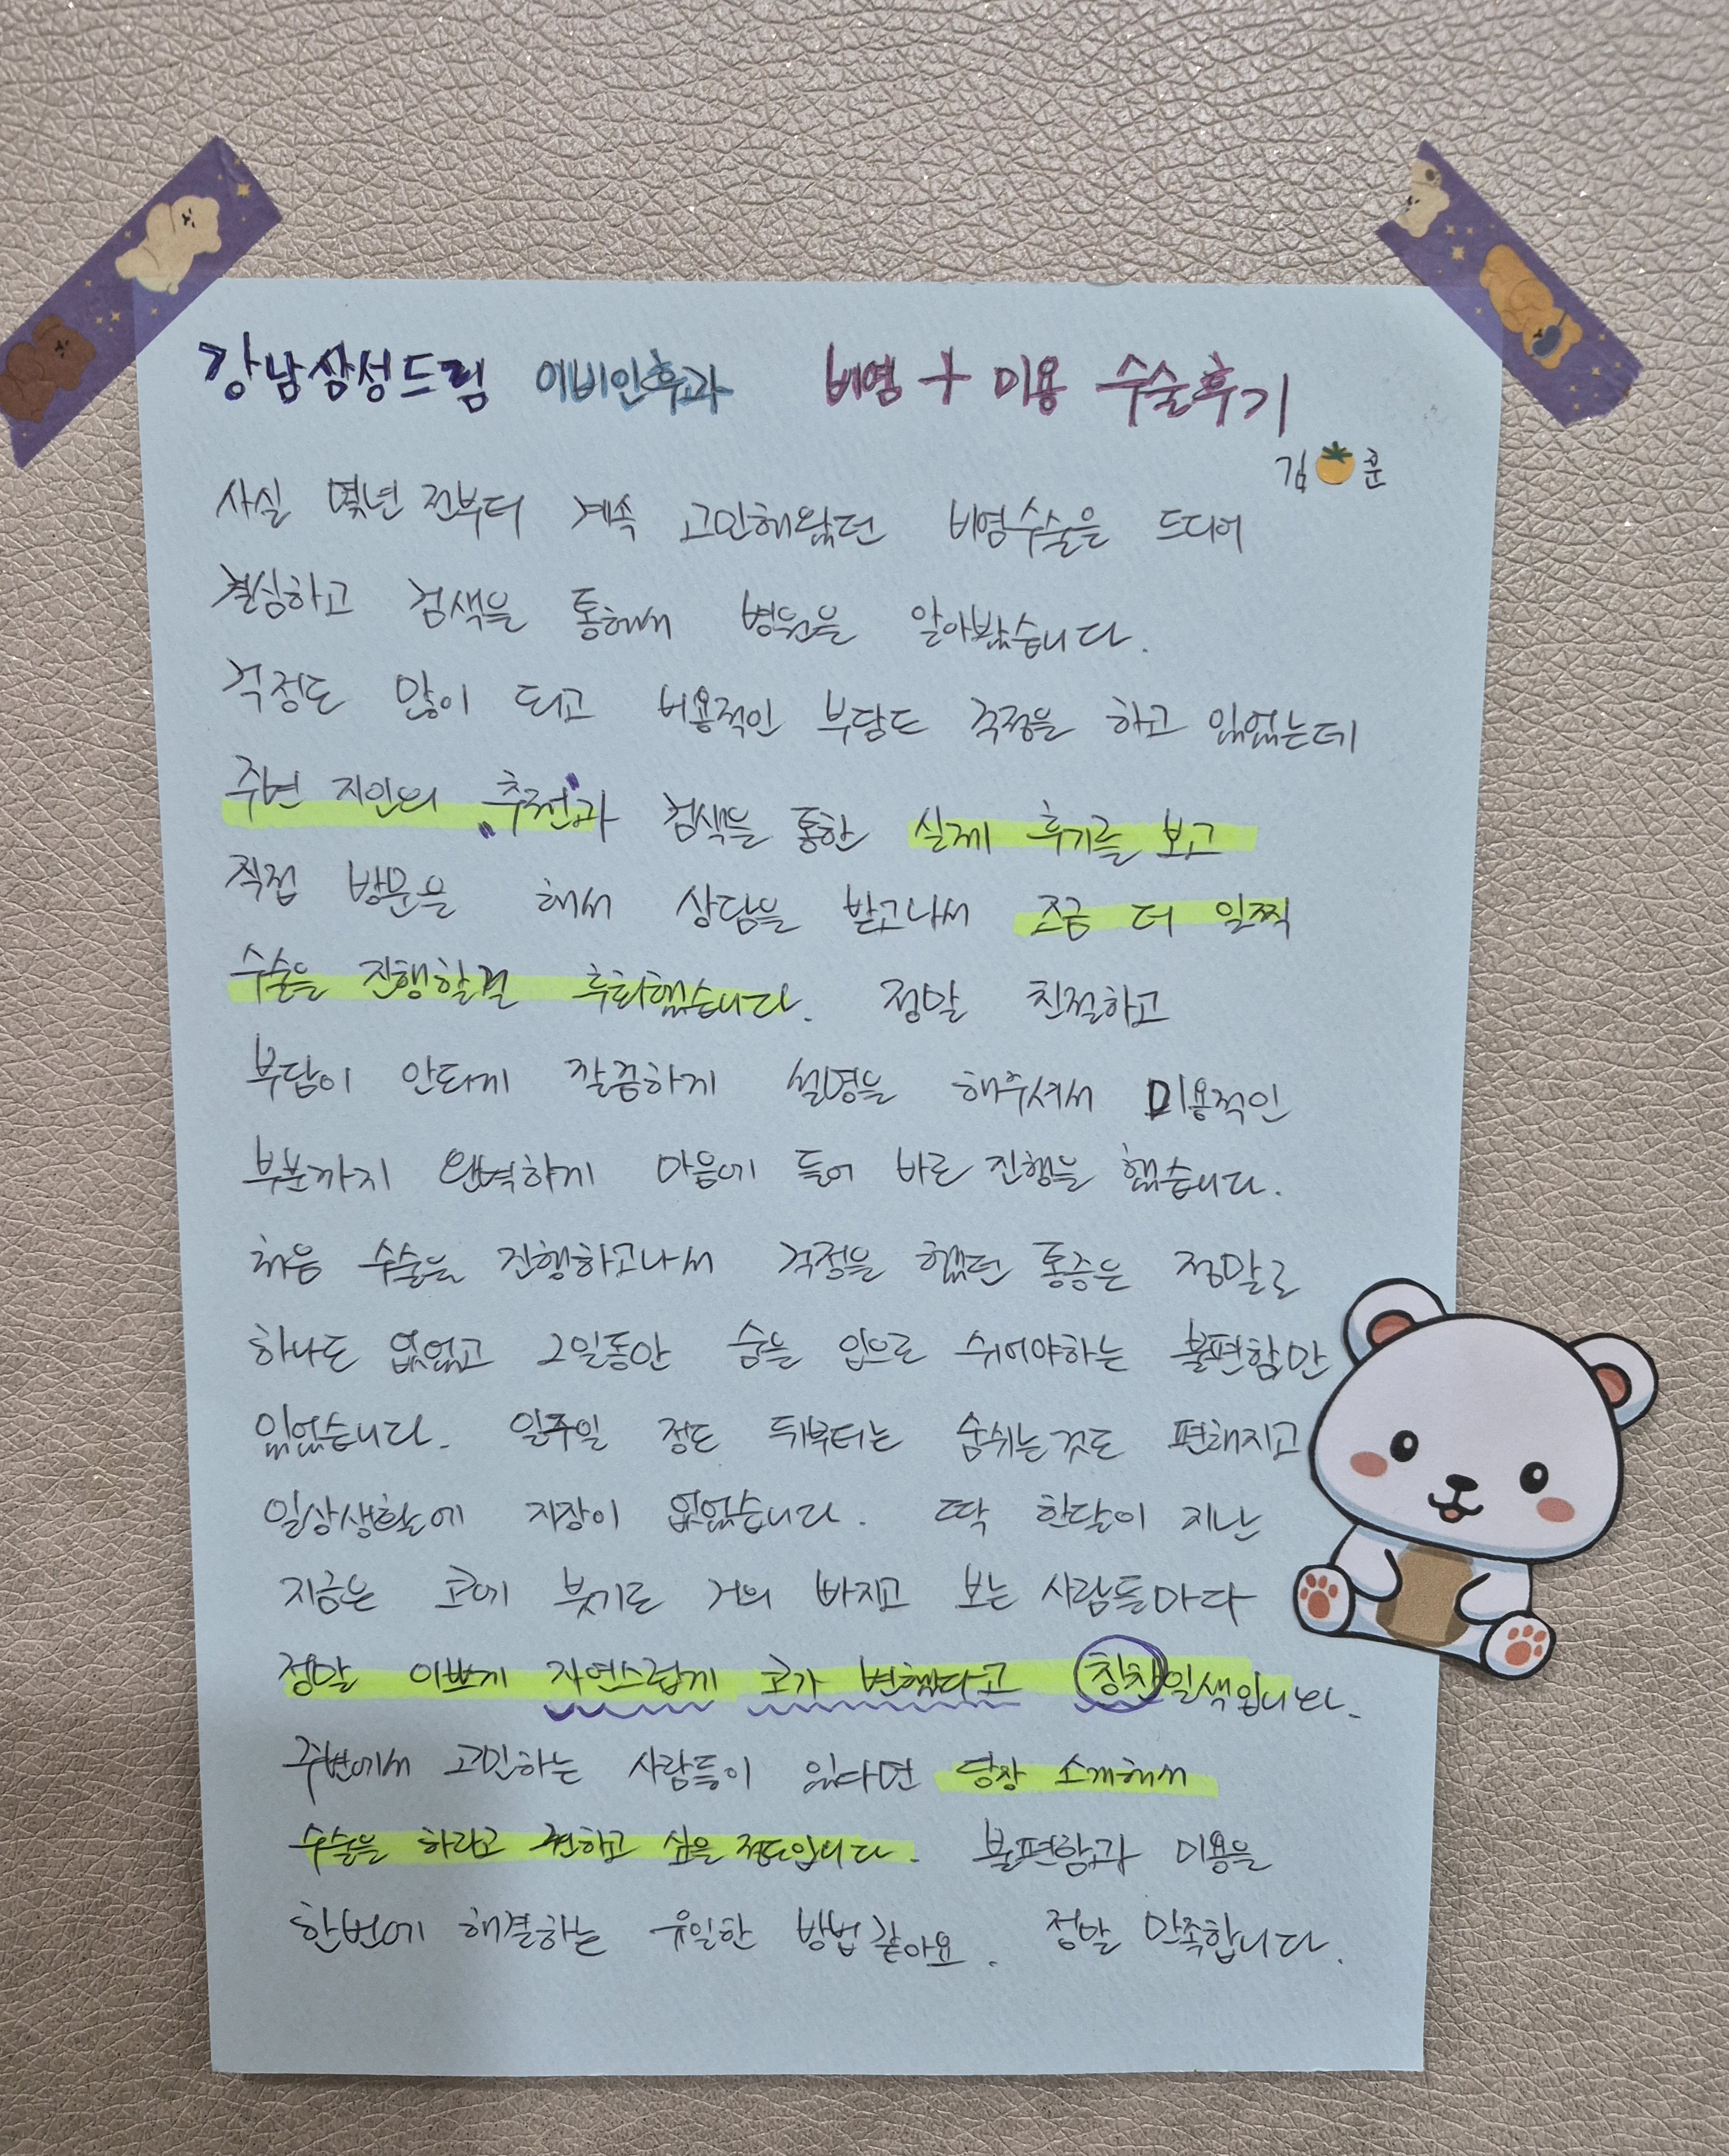 강남삼성드림 이비인후과 비염 + 미용 수술후기
김 훈
사실 몇년 전부터 계속 고민해왔던 비염수술을 드디어
결심하고 검색을 통해서 병원을 알아봤습니다.
걱정도 많이 되고 비용적인 부담도 걱정을 하고 있었는데
주변 지인의 "추천"과 검색을 통한 실제 후기를 보고
직접 방문을 해서 상담을 받고나서 조금 더 일찍
수술을 진행할걸 후회했습니다. 정말 친절하고
부담이 안되게 깔끔하게 설명을 해주셔서 미용적인
부분까지 완벽하게 마음에 들어 바로 진행을 했습니다.
처음 수술을 진행하고나서 걱정을 했던 통증은 정말로
하나도 없었고 2일동안 숨을 입으로 쉬어야하는 불편함만
있었습니다. 일주일 정도 뒤부터는 숨쉬는것도 편해지고
일상생활에 지장이 없었습니다. 딱 한달이 지난
지금은 코에 붓기도 거의 빠지고 보는 사람들마다
정말 이쁘게 자연스럽게 코가 변했다고 칭찬일색입니다.
주변에서 고민하는 사람들이 있다면 당장 소개해서
수술을 하라고 권하고 싶을 정도입니다. 불편함과 미용을
한번에 해결하는 유일한 방법 같아요. 정말 만족합니다.